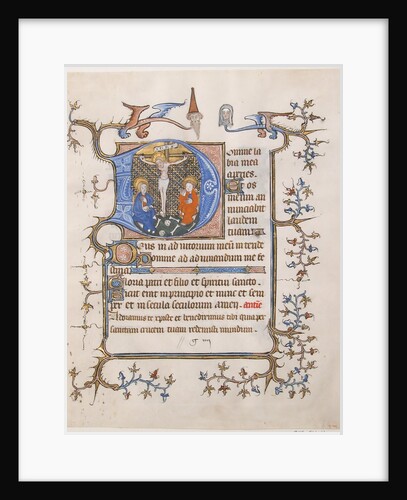 Domine la
bia mea
aperies.
Et os
meum an
nunciabit
laudem
tuam.
Deus in adiutorium meum intende
Domine ad adiuuandum me fe
stina
Gloria patri et filio et spiritui sancto.
Sicut erat in principio et nunc et sem
per et in secula seculorum amen. antie
Adoramus te xpiste et benedicimus tibi quia per
sanctam crucem tuam redemisti mundum.